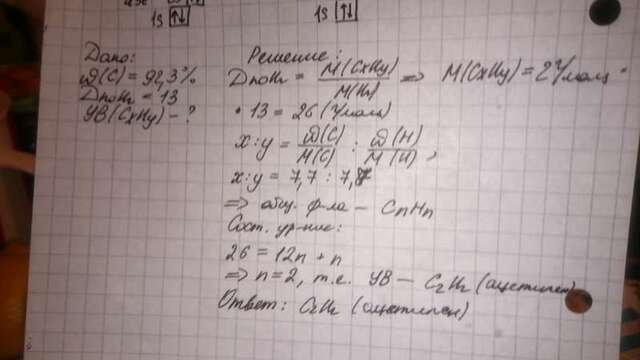 1s ↑↓
1s ↑↓
Дано:
ω(C) = 92,3%
D по H₂ = 13
УВ (CxHy) - ?
Решение:
D по H₂ = M(CxHy) / M(H₂) => M(CxHy) = 2 г/моль ·
· 13 = 26 (г/моль)
x:y = ω(C) / M(C) : ω(H) / M(H) ,
x:y = 7,7 : 7,7
=> общ. ф-ла - CnHn
Сост. ур-ние:
26 = 12n + n
=> n=2, т.е. УВ - C₂H₂ (ацетилен)
Ответ: C₂H₂ (ацетилен)